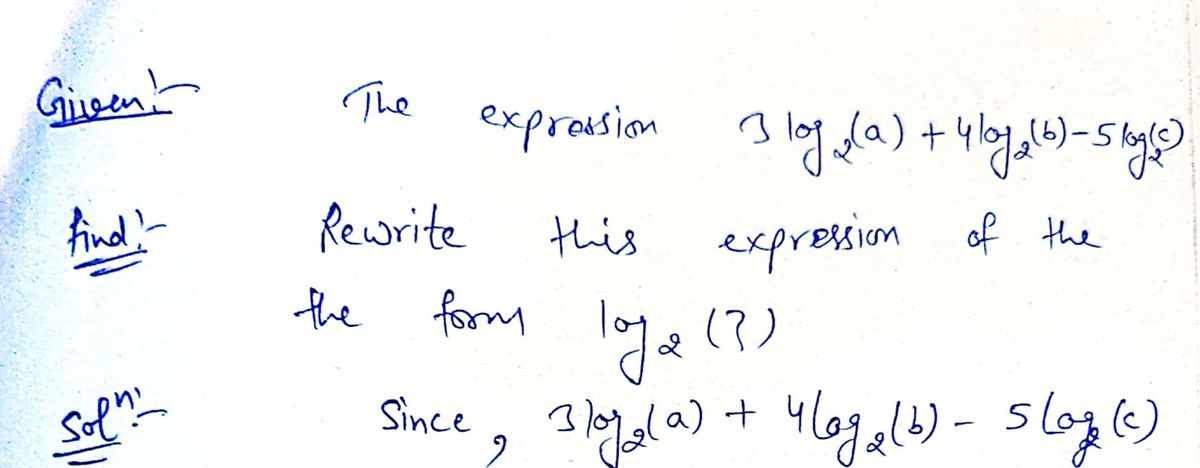 Given:- The expression 3 log₂(a) + 4log₂(b) - 5 log₂(c)
find:- Rewrite this expression of the
the form log₂ (?)
Solⁿ:- Since, 3log₂(a) + 4log₂(b) - 5 Log₂ (c)